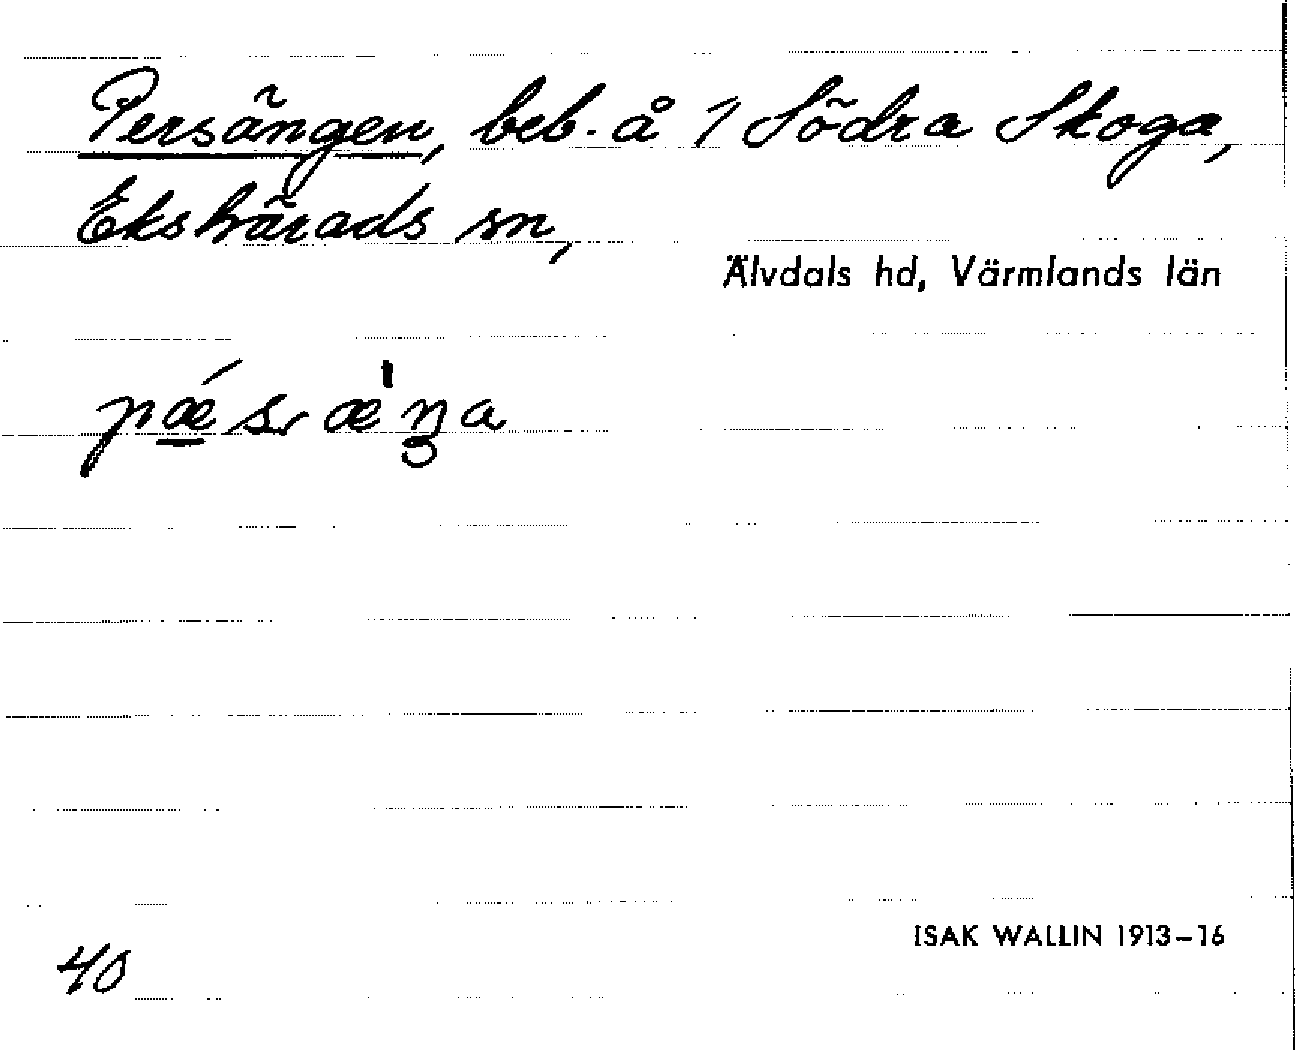 Persängen, beb. å 1 Södra Skoga,
Ekshärads sn,
Älvdals hd, Värmlands län
pǽsræ'ŋa
ISAK WALLIN 1913-16
40